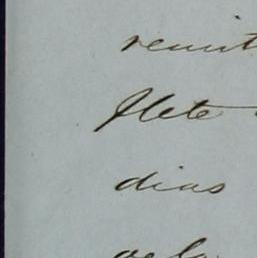 remit
flete
dias